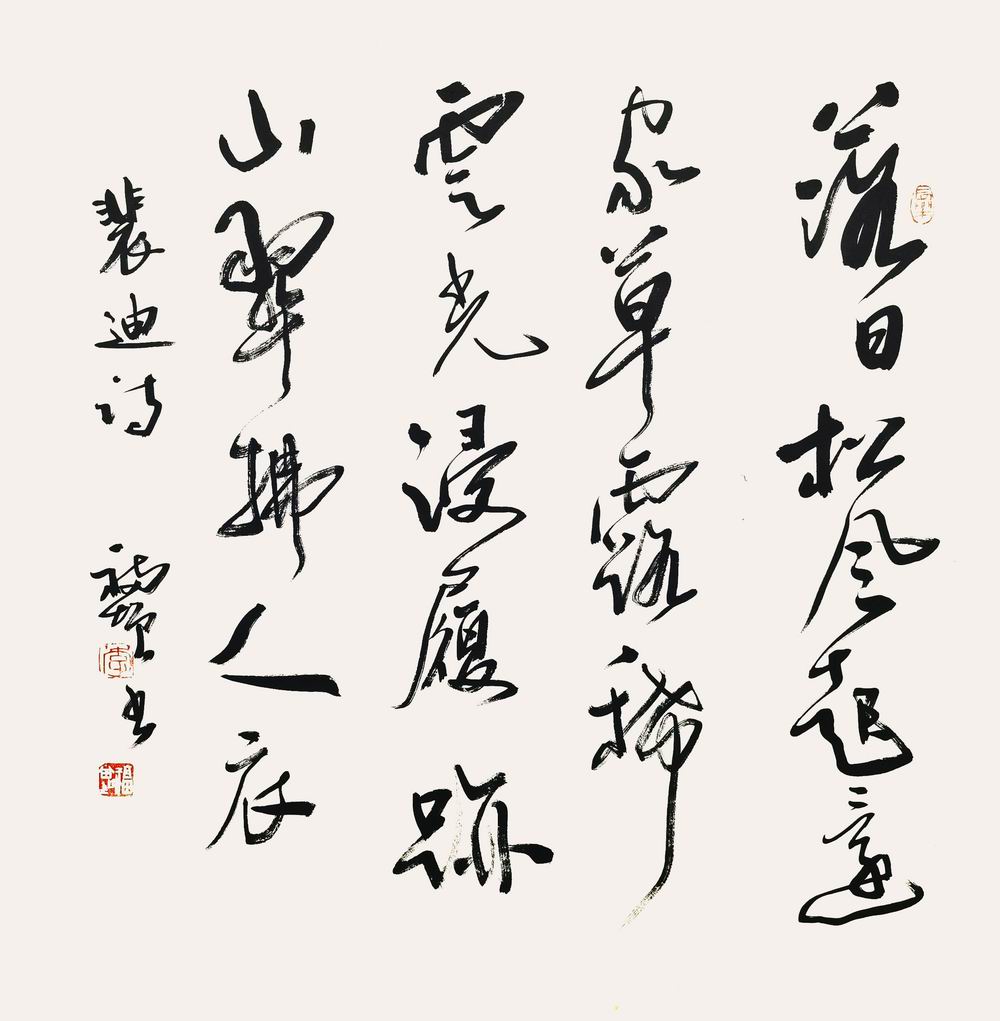 落日松风起還
家草露稀
雲光浸履跡
山翠拂人衣
裴迪诗
福 书